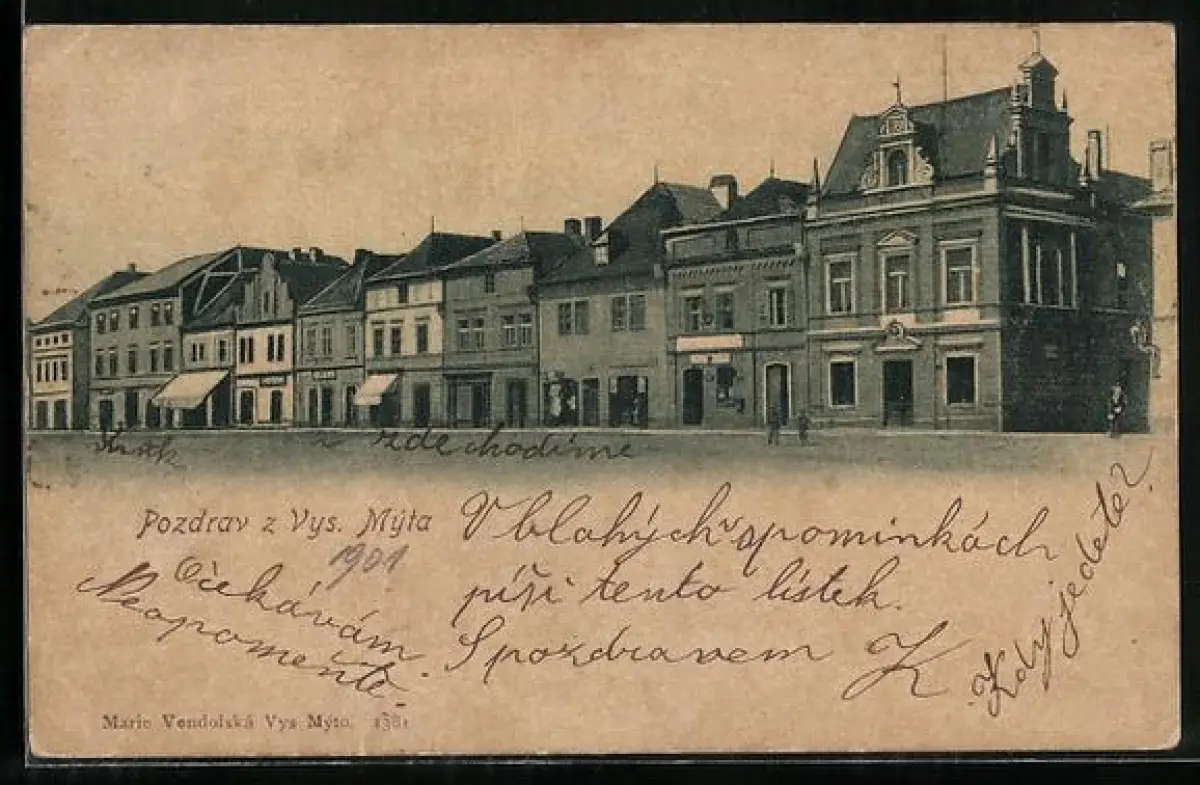 zde chodíme
Pozdrav z Vys. Mýta
1901
V blahých vspomínkách
píši tento lístek.
S pozdravem K
Očekávám.
Neopomeňte
Kdy jedete?
Marie Vendolská Vys Mýto. 1381